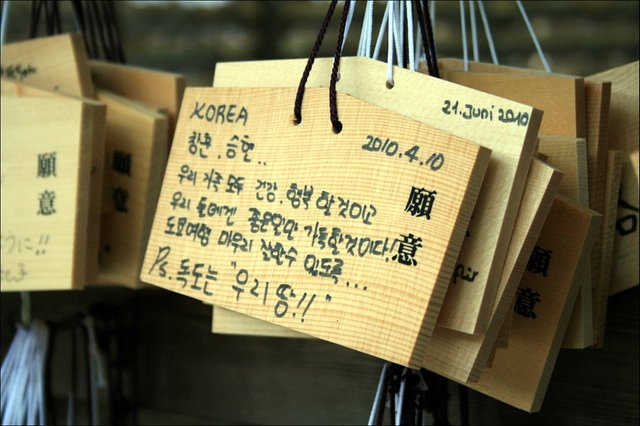 KOREA
창원. 승현..
2010.4.10
우리 가족 모두 건강. 행복 할 것이고
우리 둘에겐 좋은일만 가득할것이다.
도쿄여행 마무리 잘할수 있도록...
Ps. 독도는 "우리 땅!!"
願意
21. Juni 2010
願意
願意
願意
うに!!